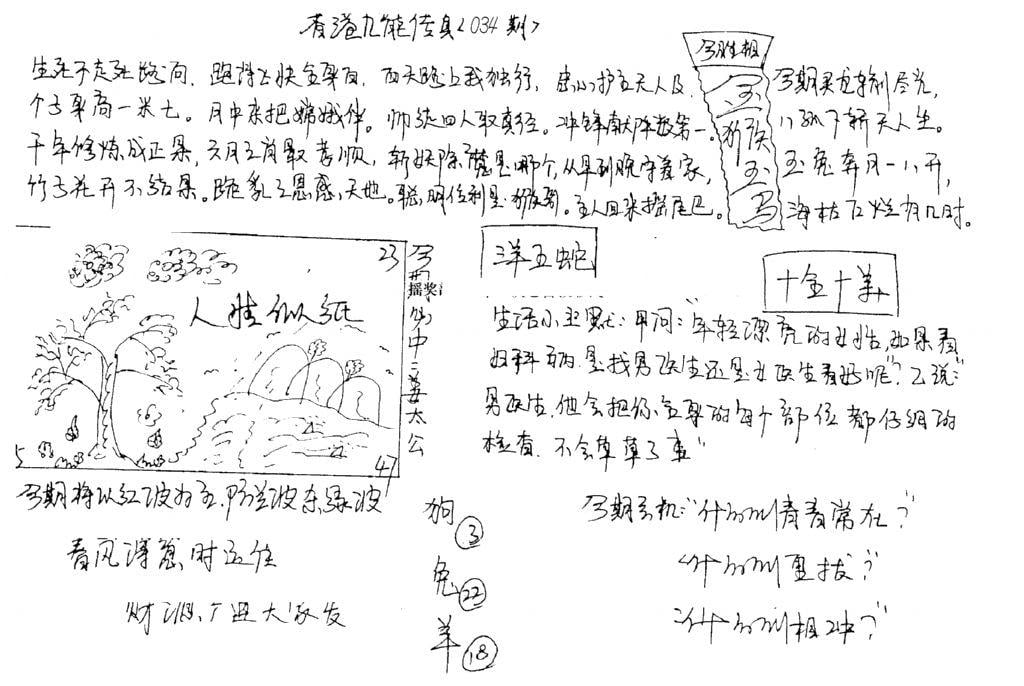 香港九龍传真<034期>
生死不走死路向，跑得上快全身白，西天路上我独行，忠心护主无人及，
个子身高一米七。月中来把嫦娥伴。师徒四人取真经。冲锋献阵数第一。
千年修炼成正果，六月之首最孝顺，斩妖除魔是哪个，从早到晚守着家，
竹子花开不结果。跪乳之恩感天地。聪明伶利是猴哥。主人回来摇尾巴。
今胜相
玉
狗猴
玉
马
今期买龙输到尽光，
玉兔奔月一八开，
海枯石烂有几时。
23
人生似纸
5
47
今
摇奖
仙中
姜太公
羊五蛇
十全十美
生活小幽默：甲问："年轻漂亮的女性，如果看
妇科病是找男医生还是女医生看好呢？"乙说："
男医生，他会把你全身的每个部位都仔细的
检查，不会草草了事"
今期将以红波为主，防兰波杀绿波
春风得意时运佳
财源广进大家发
狗 3
兔 22
羊 18
今期玄机："什么叫青春常在？"
"什么叫重拔？"
"什么叫相冲？"